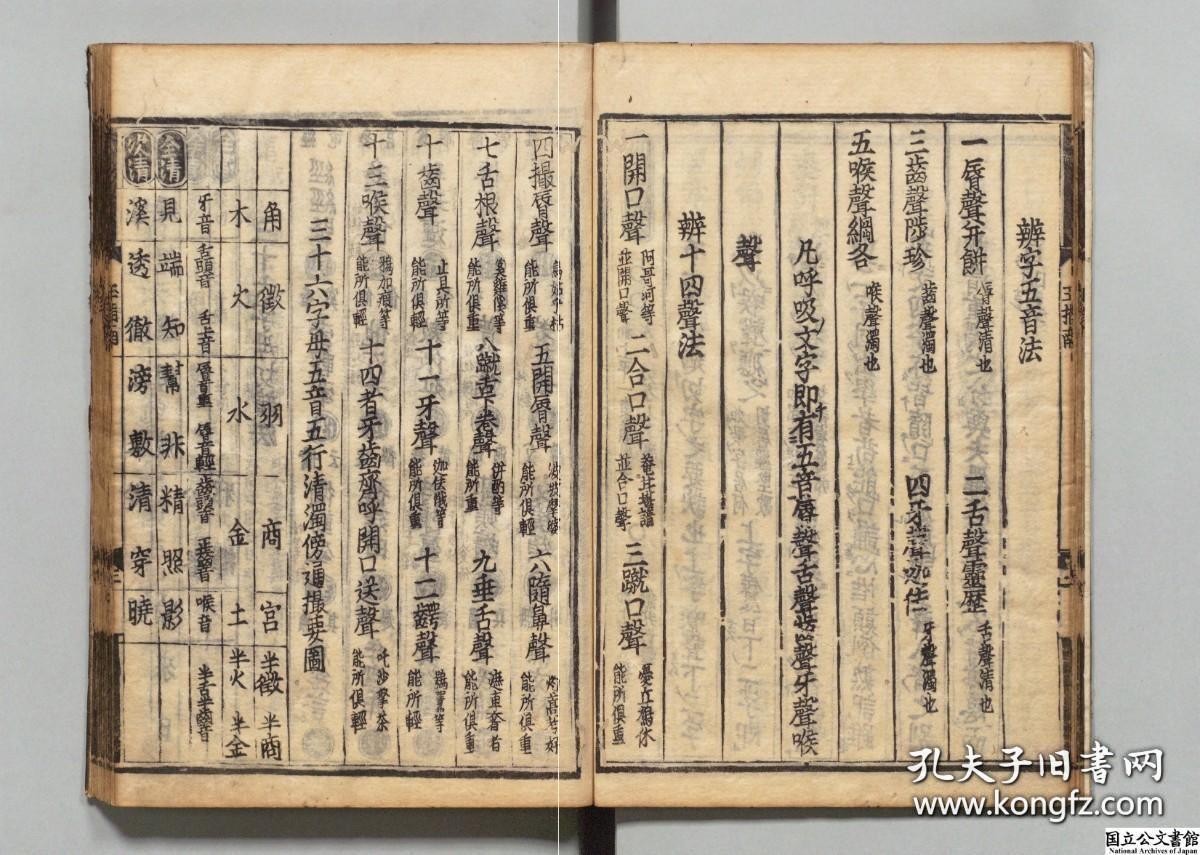 辨字五音法
一脣聲并餅 脣聲清也 二舌聲靈歷 舌聲清也
三齒聲陟珍 齒聲濁也 四牙聲迦佉 牙聲濁也
五喉聲綱各 喉聲濁也
凡呼吸文字即有五音脣聲舌聲齒聲牙聲喉
聲
辨十四聲法
一開口聲 阿哥河等並開口聲 二合口聲 菴甘堪諳並合口聲 三蹴口聲 憂丘鳩休能所俱重
四撮脣聲 能所俱重 五開脣聲 能所俱輕 六隨鼻聲 能所俱重
七舌根聲 奚雞傒等能所俱重 八蹴舌下卷聲 能所俱重 九垂舌聲 遮車奢者能所俱重
十齒聲 止其所等能所俱輕 十一牙聲 迦佉俄等能所俱重 十二齶聲 能所輕
十三喉聲 鴉加瘕等能所俱輕 十四者牙齒齊呼開口送聲 吒沙拏茶能所俱輕
三十六字母五音五行清濁傍通撮要圖
角 徵 羽 商 宮 半徵 半商
木 火 水 金 土 半火 半金
牙音 舌頭音 舌上音 脣音重 脣音輕 齒頭音 正齒音 喉音 半舌半齒音
全清 見 端 知 幫 非 精 照 影
次清 溪 透 徹 滂 敷 清 穿 曉
孔夫子旧書网
www.kongfz.com
国立公文書館
National Archives of Japan